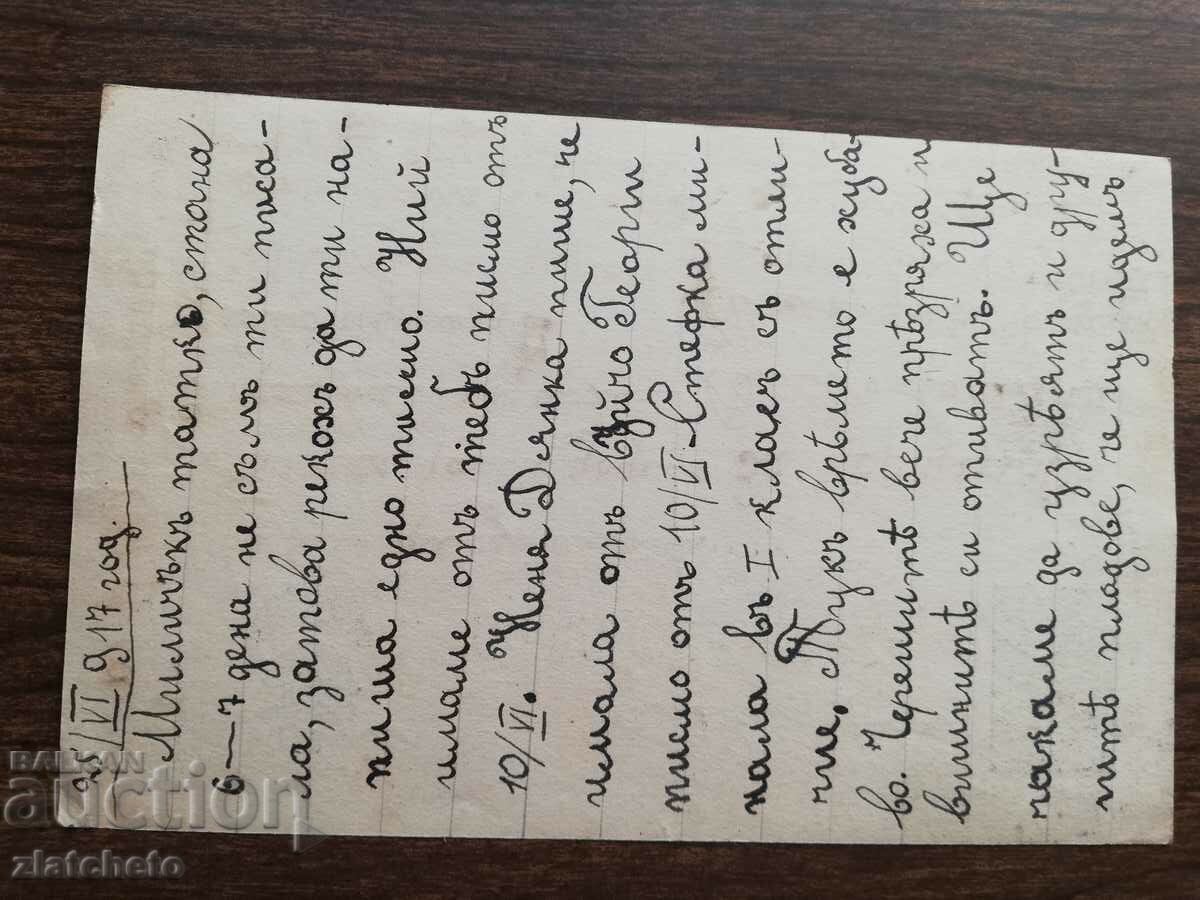 25/VI 917 год.
Миличкъ татко, стана
6–7 дена не съмъ ти писа-
ла, затова рекохъ да ти на-
пиша едно писмо. Ний
имаме отъ тебъ писмо отъ
10/VI. Ценя Дянка пише, че
имала отъ вуйчо Георги
писмо отъ 10/VI. Стефка ми-
нала въ I класъ съ отли-
чие. Тукъ врѣмето е хуба-
во. Черешитѣ вече прѣзряха и
вишнитѣ си отиватъ. Ще
чакаме да узрѣятъ и дру-
гитѣ плодове, че ще идемъ
BALKAN
auction
zlatcheto